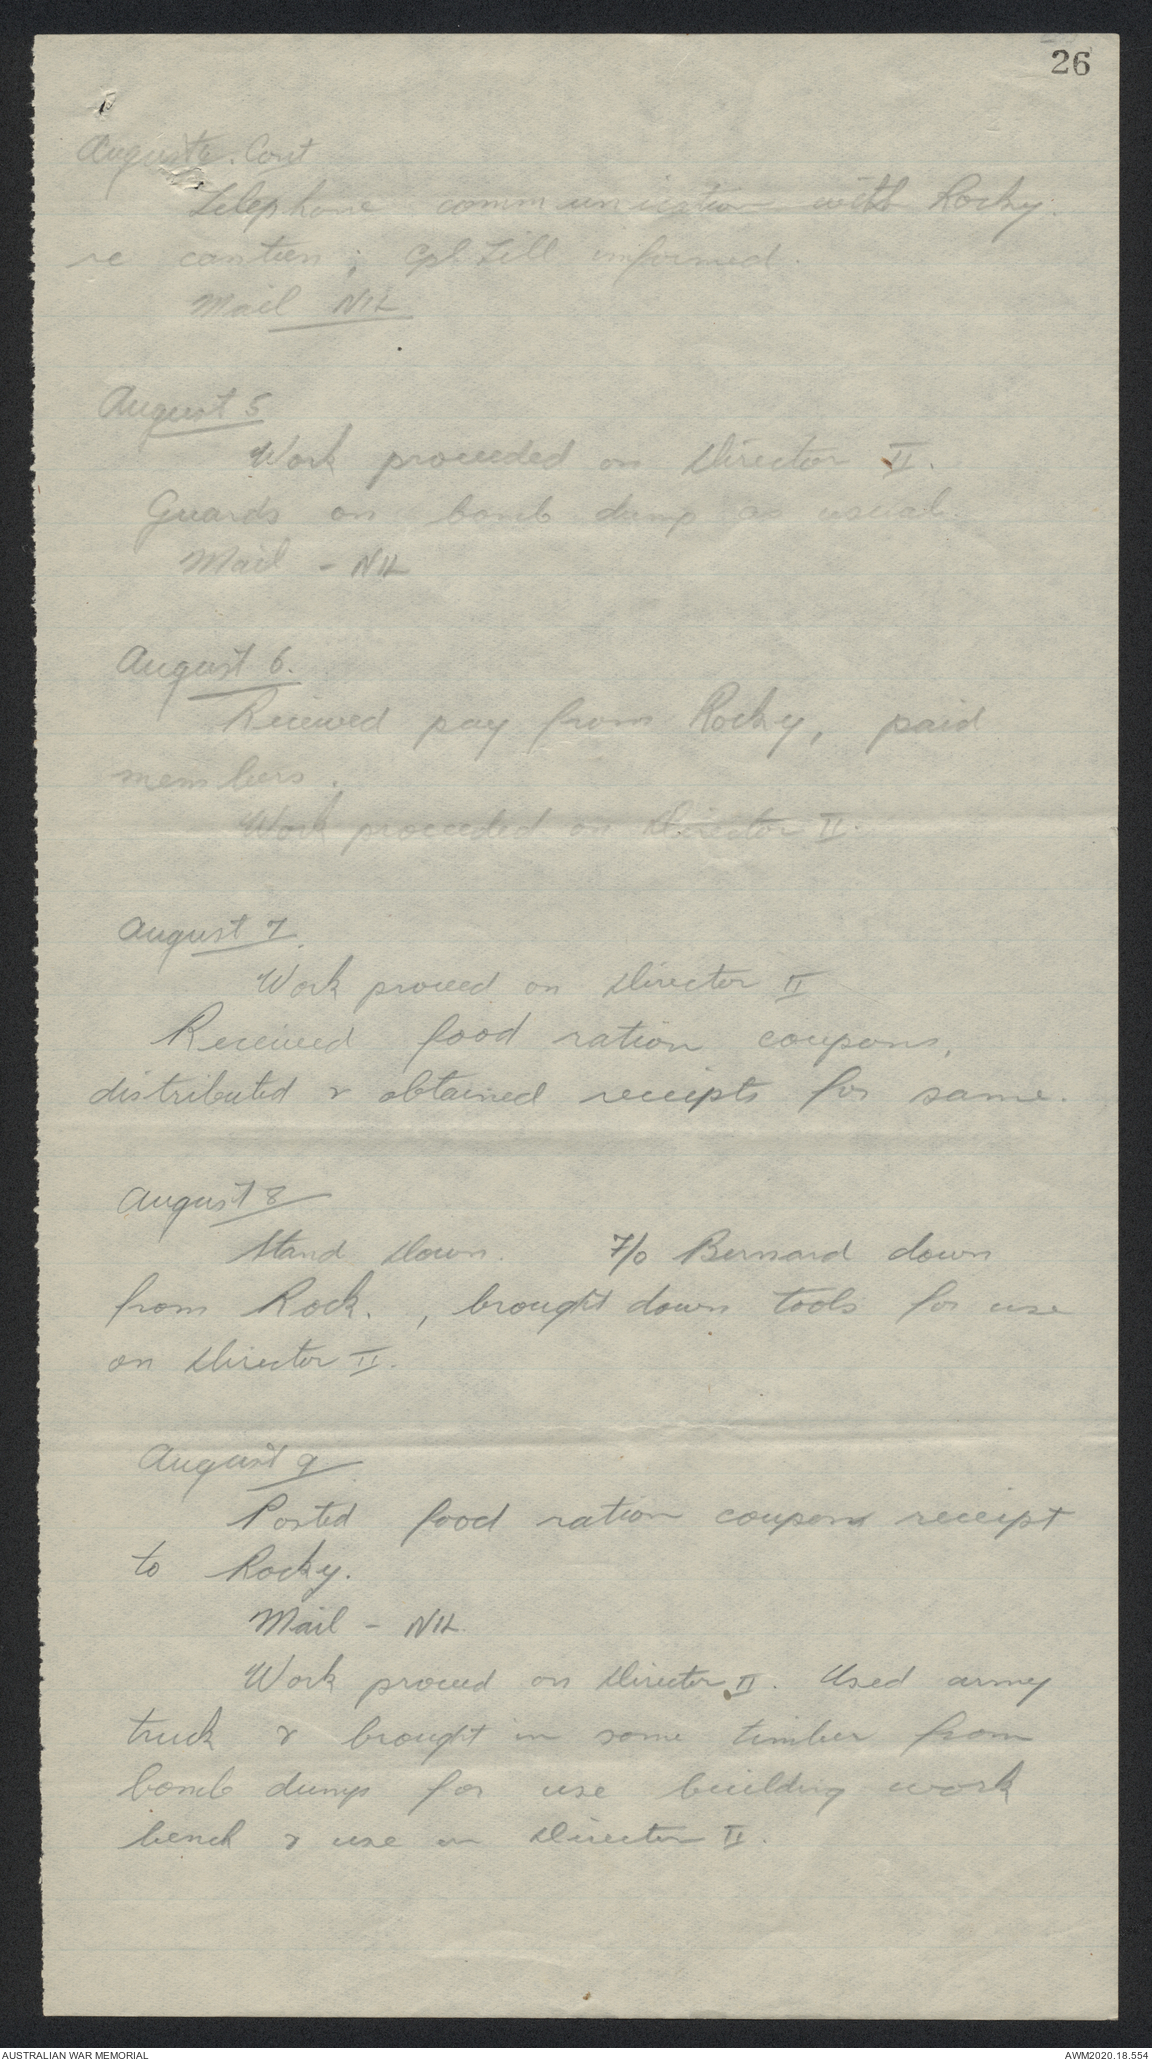 26
August 4. Cont
Telephone communication with Rocky.
re canteen; Cpl. Lill informed.
Mail NIL
August 5
Work proceeded on Director II.
Guards on bomb dump as usual.
Mail - NIL
August 6.
Received pay from Rocky, paid
members.
Work proceeded on Director II.
August 7.
Work proceed on Director II
Received food ration coupons,
distributed & obtained receipts for same.
August 8
Stand Down. F/O Bernard down
from Rock. , brought down tools for use
on Director II.
August 9
Posted food ration coupons receipt
to Rocky.
Mail - NIL.
Work proceed on Director II. Used army
truck & brought in some timber from
bomb dump for use building work
bench & use on Director II.
AUSTRALIAN WAR MEMORIAL
AWM2020.18.554